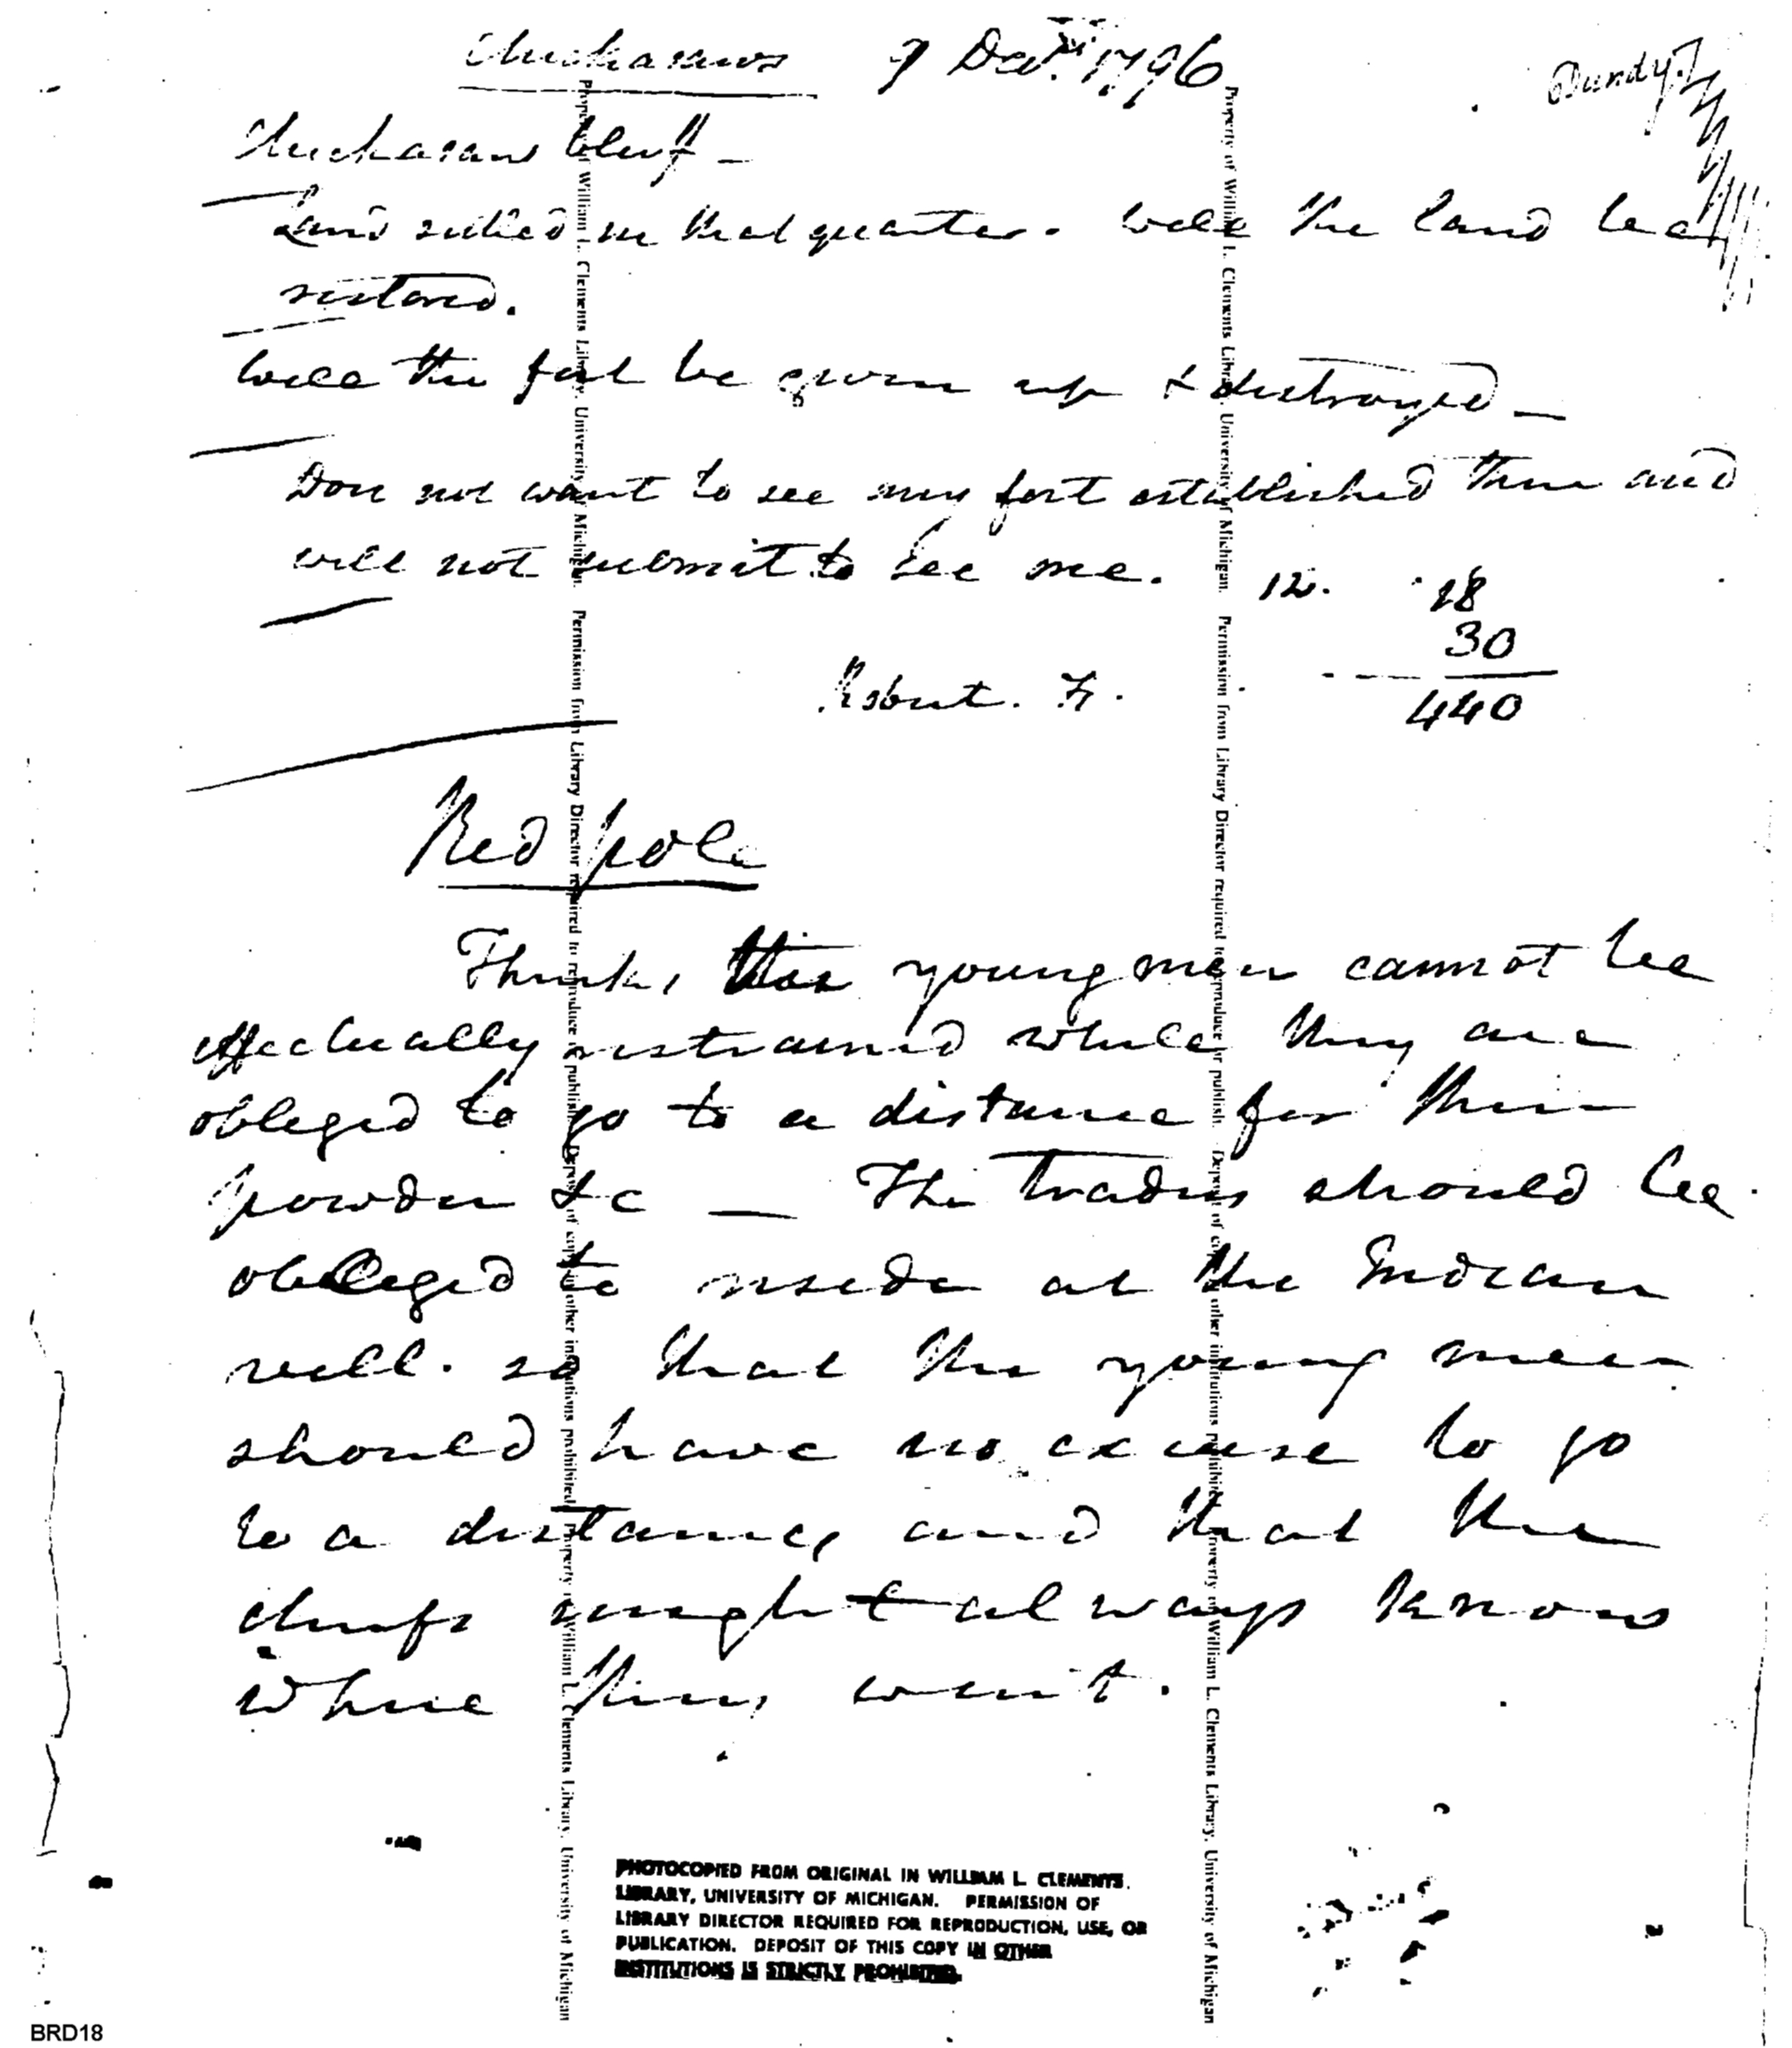 Chickasaws 9 Decr. 1796
Dundy
Chickasaw bluff —
Land settled in that quarter. Will the land be
restored.
Will the fort be given up & destroyed —
Don not want to see any fort established there and
will not submit to see one. 12. 18
30
440
About.
Red pole
Thinks the young men cannot be
effectually restrained while they are
obleged to go to a distance for their
powder &c — The Traders should be
obleged to reside at the Indian
vill. so that the young men
should have no excuse to go
to a distance, and that the
chiefs might always know
where they went.
Property of William L. Clements Library, University of Michigan. Permission from Library Director required to reproduce or publish. Deposit of copy in other institutions prohibited. Property of William L. Clements Library, University of Michigan
Property of William L. Clements Library, University of Michigan. Permission from Library Director required to reproduce or publish. Deposit of copy in other institutions prohibited. Property of William L. Clements Library, University of Michigan
PHOTOCOPIED FROM ORIGINAL IN WILLIAM L. CLEMENTS
LIBRARY, UNIVERSITY OF MICHIGAN. PERMISSION OF
LIBRARY DIRECTOR REQUIRED FOR REPRODUCTION, USE, OR
PUBLICATION. DEPOSIT OF THIS COPY IN OTHER
INSTITUTIONS IS STRICTLY PROHIBITED.
BRD18